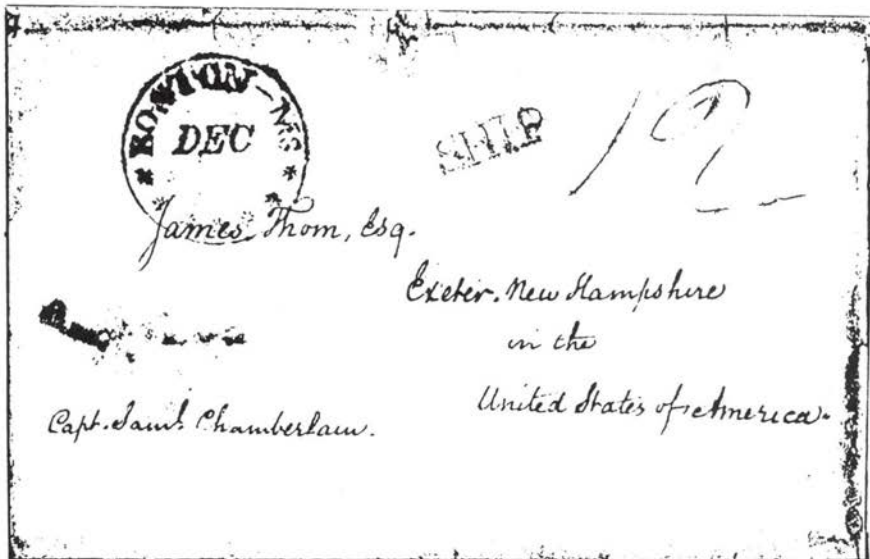 BOSTON–MS
DEC
SHIP
12
James Thom, Esq.
Exeter. New Hampshire
in the
United States of America.
Capt. Saml. Chamberlain.